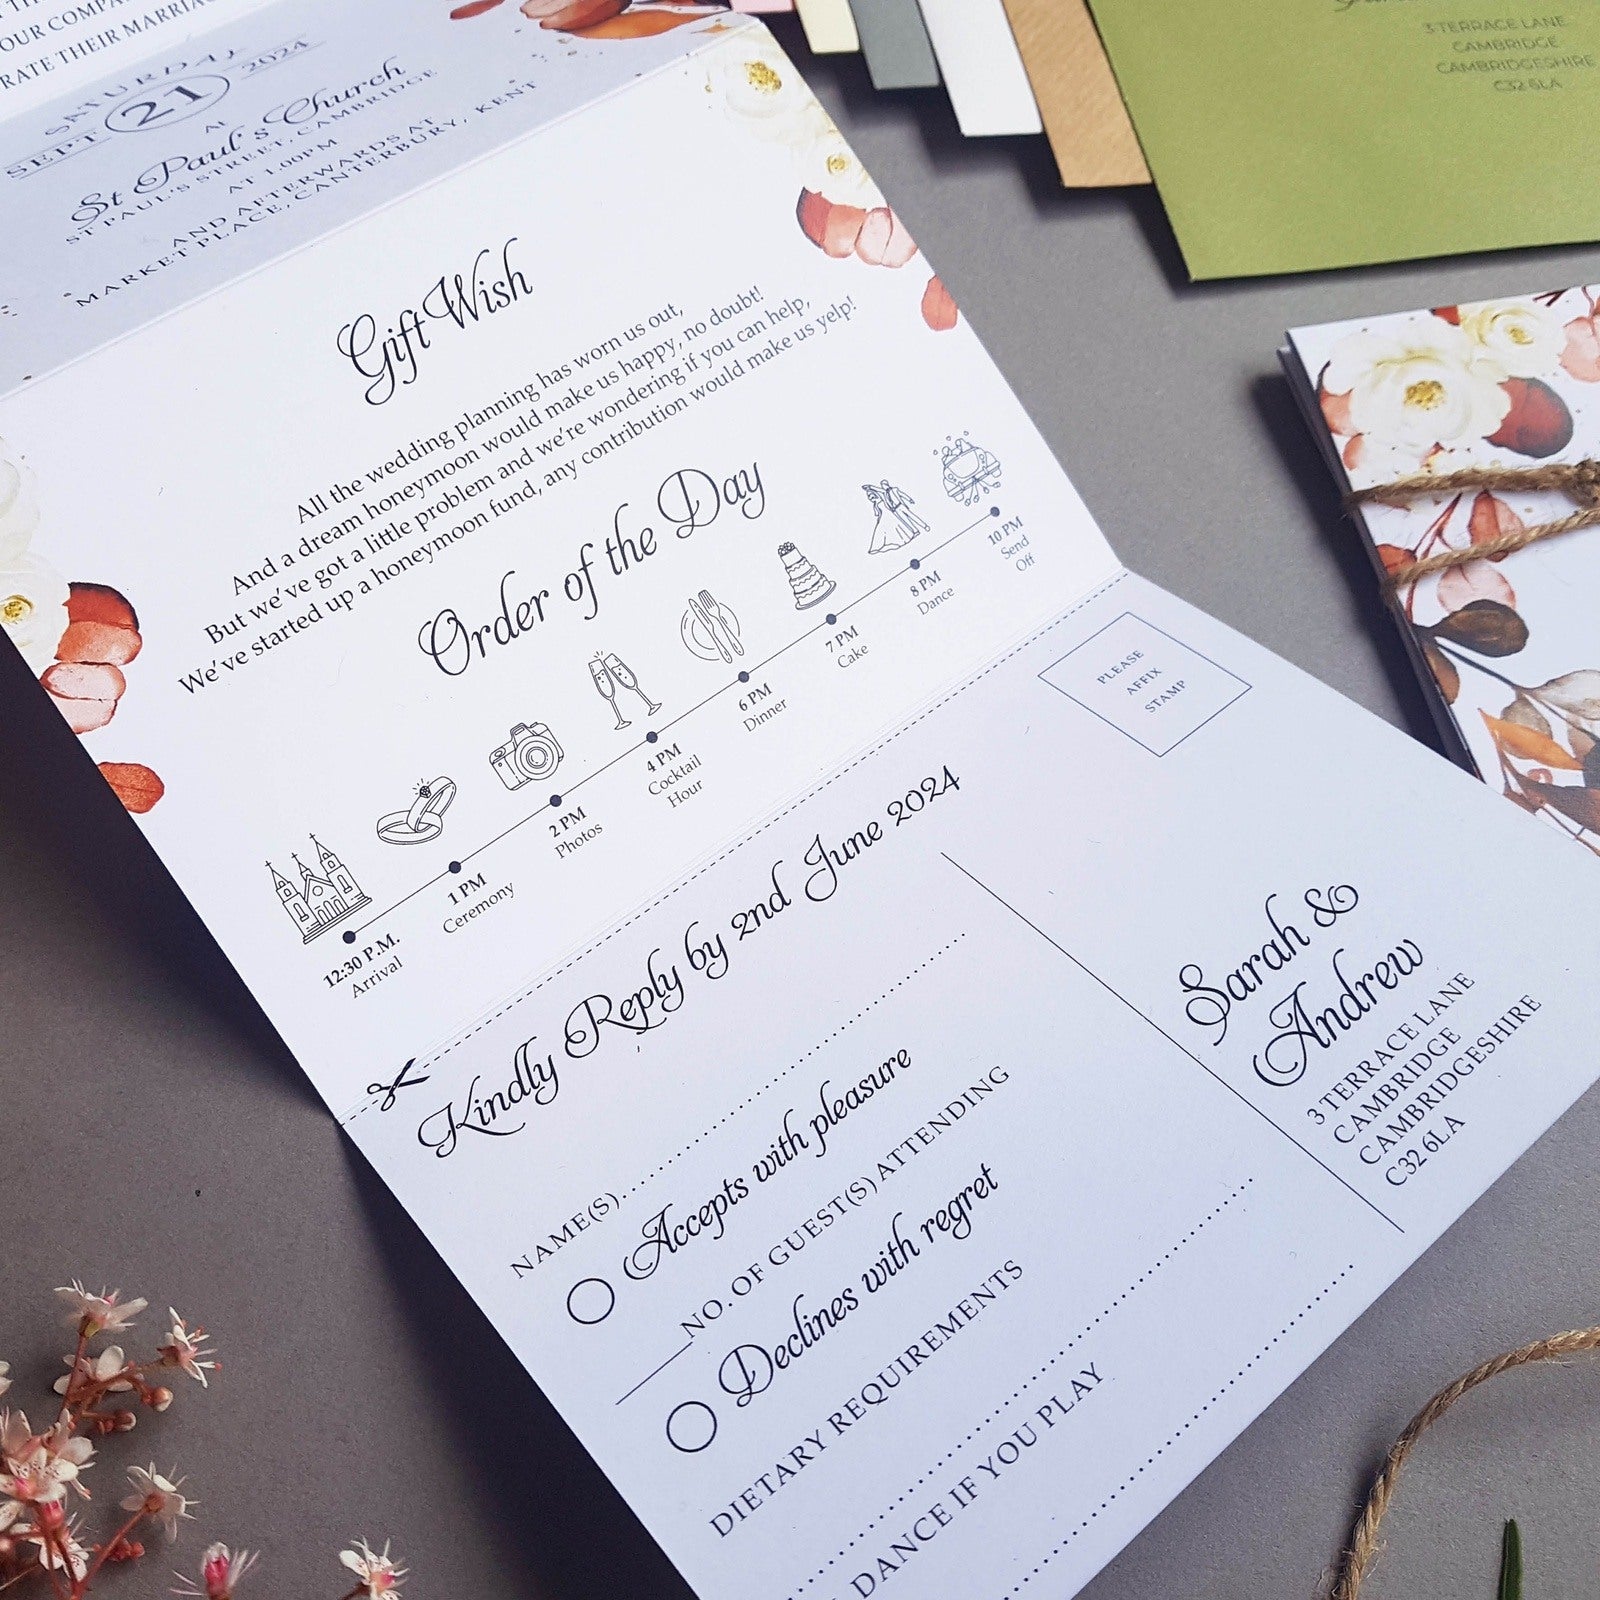 OUR COMPAN
RATE THEIR MARRIAG
SATURDAY
SEPT 21 2024
AT
St Paul's Church
ST PAUL'S STREET, CAMBRIDGE
AT 1.00PM
AND AFTERWARDS AT
MARKET PLACE, CANTERBURY, KENT
Gift Wish
All the wedding planning has worn us out,
And a dream honeymoon would make us happy, no doubt!
But we've got a little problem and we're wondering if you can help,
We've started up a honeymoon fund, any contribution would make us yelp!
Order of the Day
12:30 P.M.
Arrival
1 PM
Ceremony
2 PM
Photos
4 PM
Cocktail
Hour
6 PM
Dinner
7 PM
Cake
8 PM
Dance
10 PM
Send
Off
Kindly Reply by 2nd June 2024
NAME(S)
Accepts with pleasure
NO. OF GUEST(S) ATTENDING
Declines with regret
DIETARY REQUIREMENTS
DANCE IF YOU PLAY
PLEASE
AFFIX
STAMP
Sarah &
Andrew
3 TERRACE LANE
CAMBRIDGE
CAMBRIDGESHIRE
C32 6LA
3 TERRACE LANE
CAMBRIDGE
CAMBRIDGESHIRE
C32 6LA